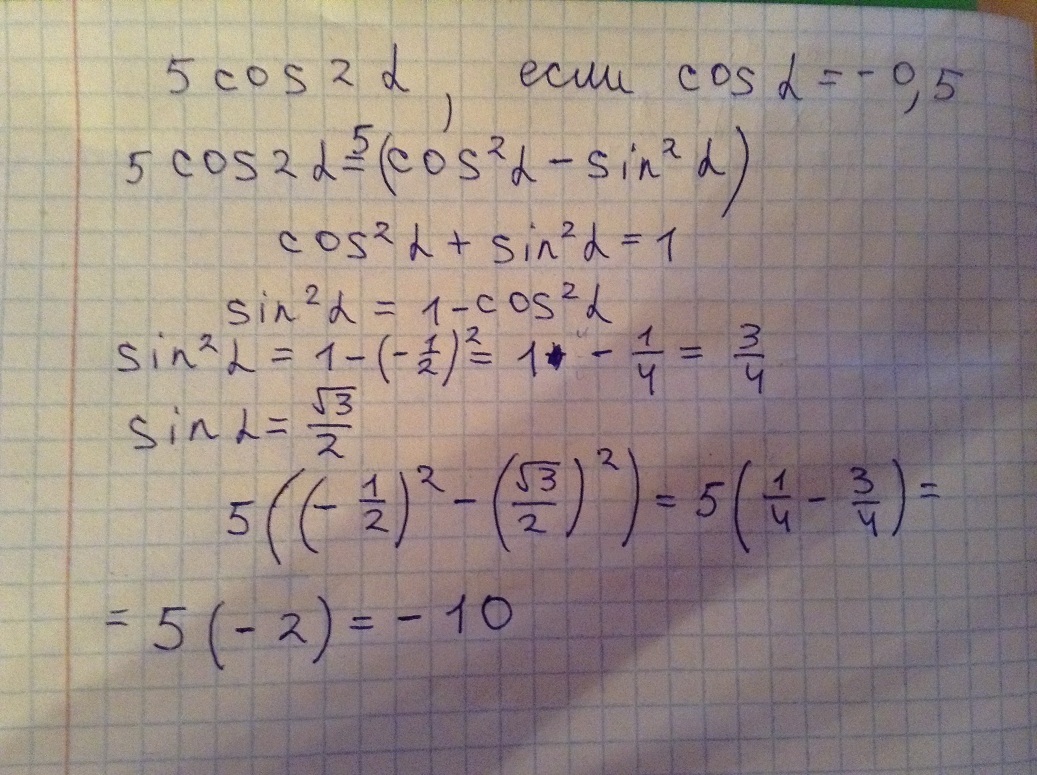 5 cos 2 α, если cos α = - 0,5
5 cos 2 α = 5 (cos² α - sin² α)
cos² α + sin² α = 1
sin² α = 1 - cos² α
sin² α = 1 - (- 1/2)² = 1 - 1/4 = 3/4
sin α = √3/2
5 ((- 1/2)² - (√3/2)²) = 5 (1/4 - 3/4) =
= 5 (- 2) = - 10